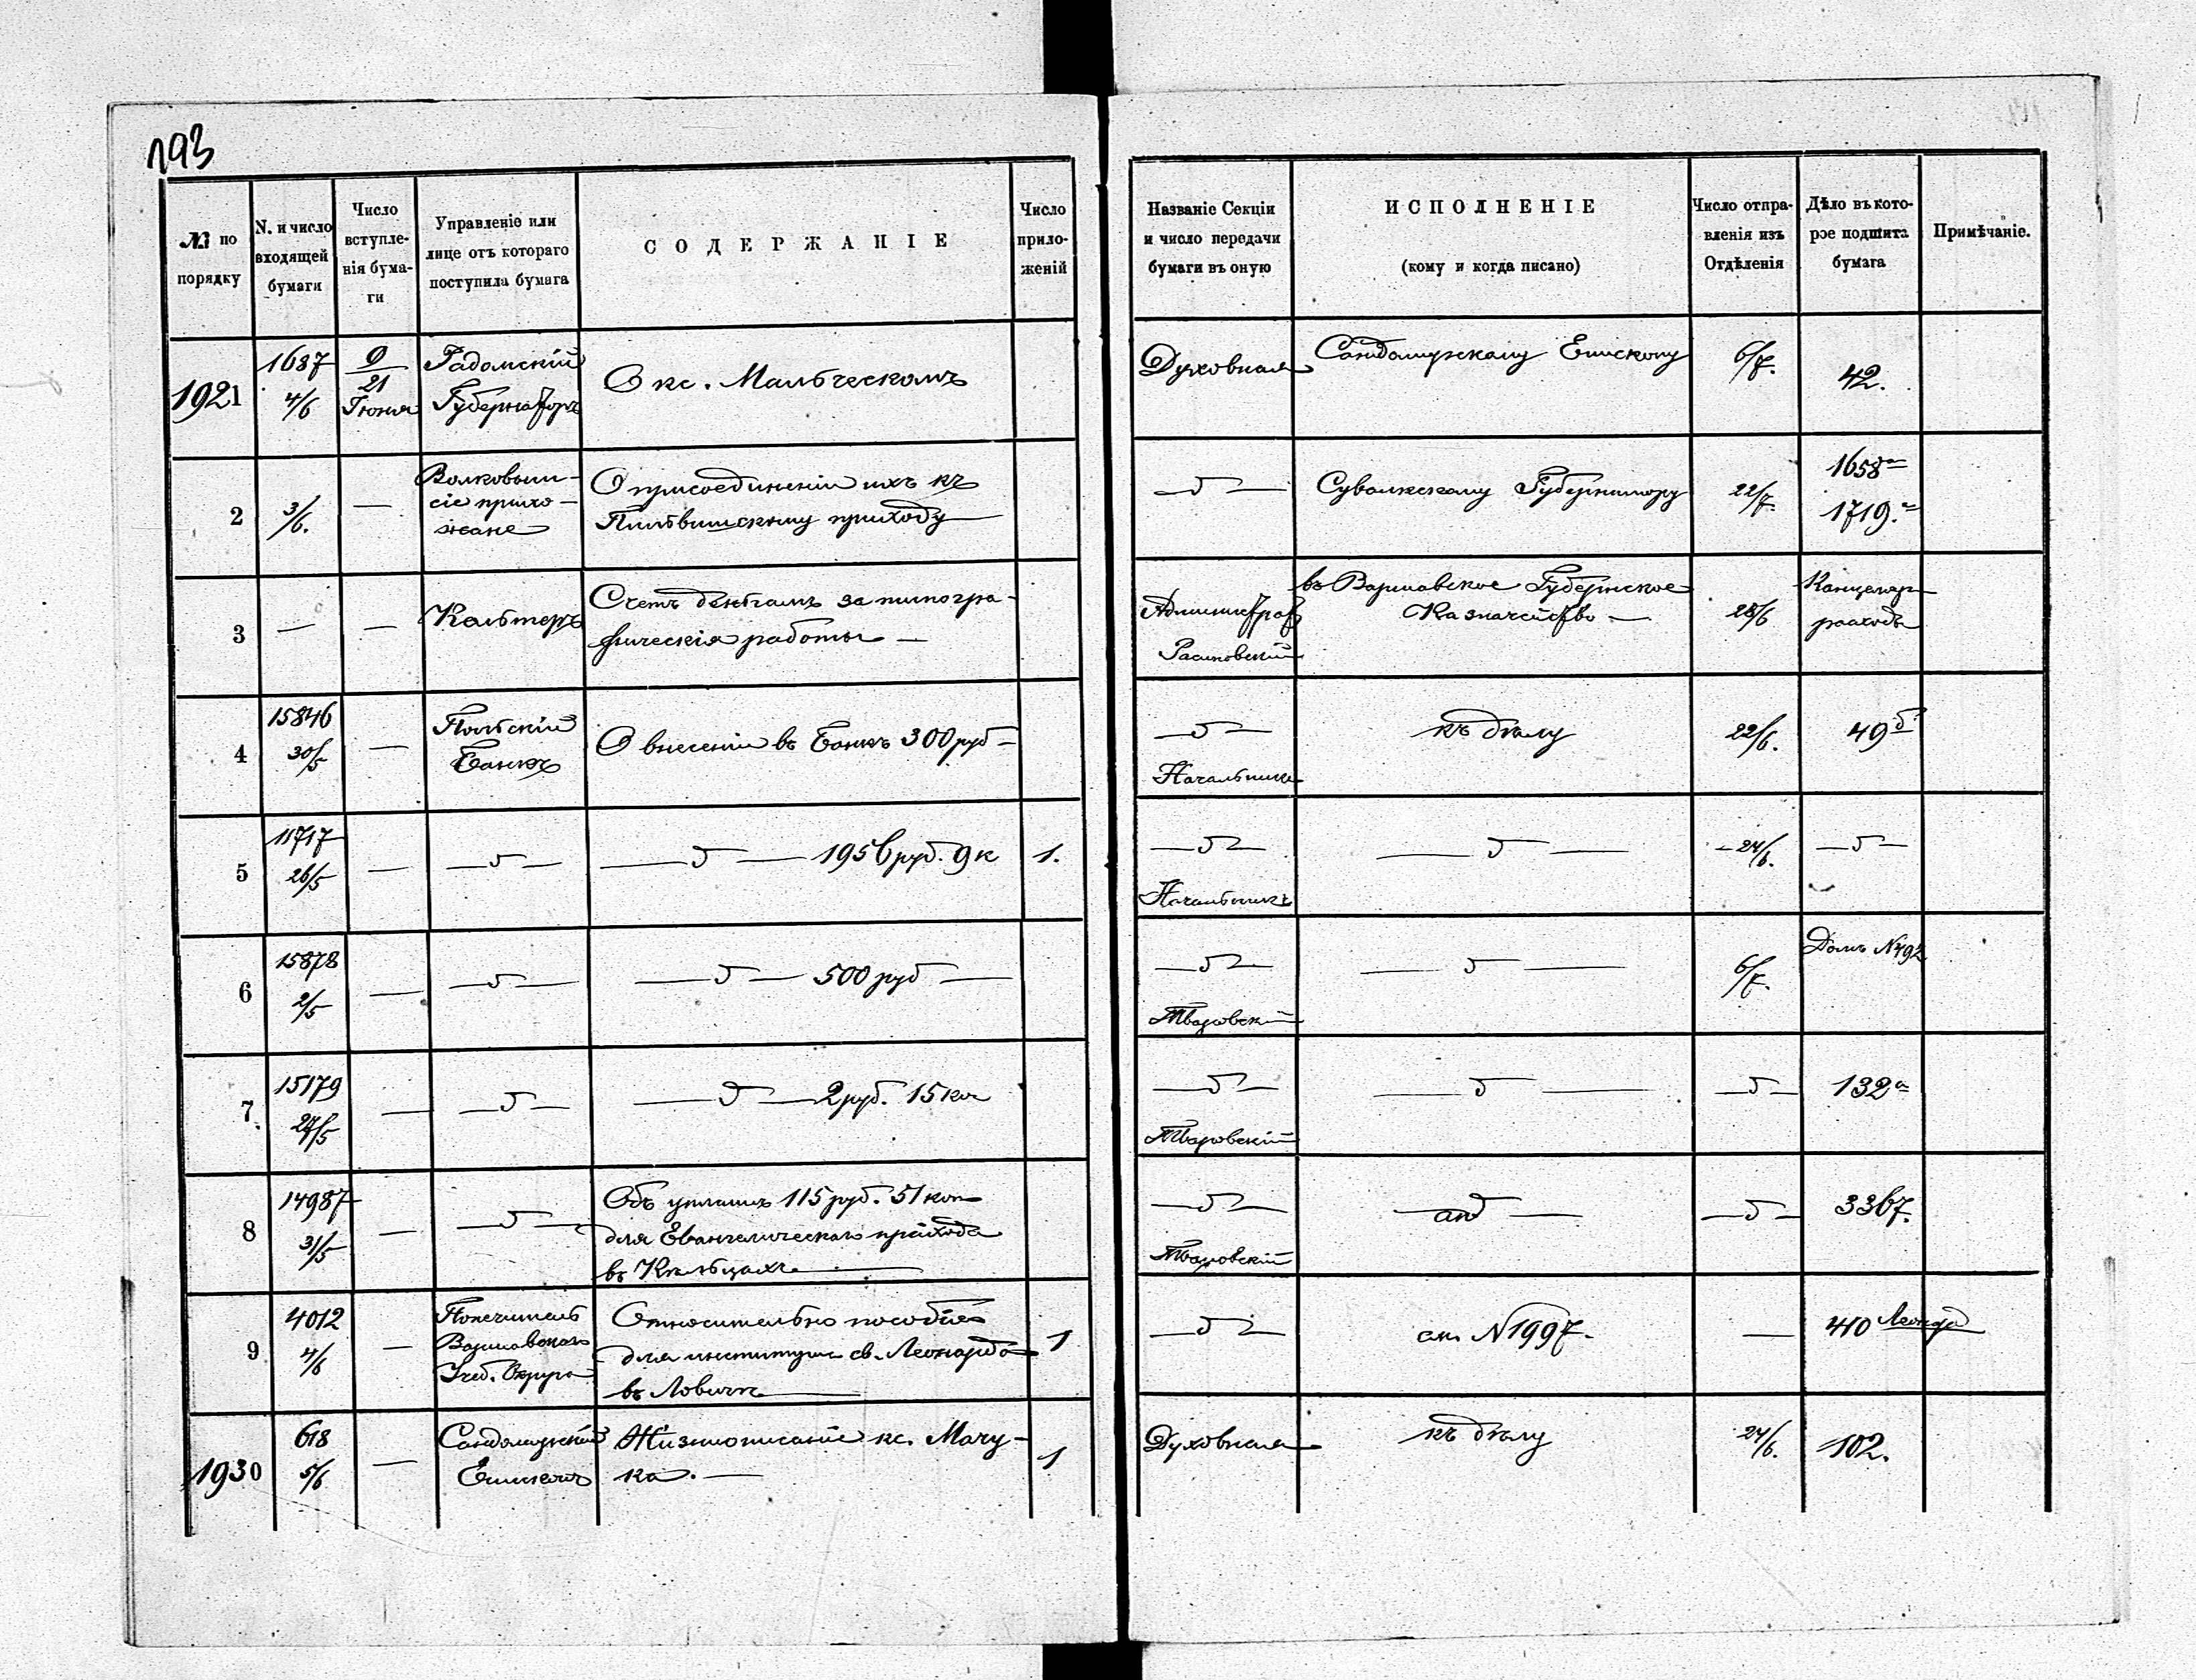 193
№ по порядку
N. и число входящей бумаги
Число вступле-нія бума-ги
Управленіе или лице отъ котораго поступила бумага
СОДЕРЖАНІЕ
Число прило-женій
Названіе Секціи и число передачи бумаги въ оную
ИСПОЛНЕНІЕ
(кому и когда писано)
Число отпра-вленія изъ Отдѣленія
Дѣло въ кото-рое подшита бумага
Примѣчаніе.
1921
1687 4/6
9/21 Іюня
Радомскій Губернаторъ
О кс. Мальческомъ
Духовная
Сандомирскому Епископу
6/7.
42.
2
3/6.
—
Волковыш-
скіе прихо-
жане
О присоединеніи ихъ къ
Пильвишскому приходу —
— " —
Сувалкскому Губернатору
22/7.
1658а
1719.а
3
—
—
Кельтеръ
Счетъ деньгамъ за типогра-
фическія работы —
въ Варшавское Губернское
Казначейство —
28/6
Канцеляр
расходы
4
15846 30/5
—
Польскій
Банкъ
О внесеніи въ Банкъ 300 руб —
— " —
Начальникъ
къ дѣлу
22/6.
49 б
5
11717 26/5
—
— " —
— " — 1956 руб. 9 к
1.
— " —
Начальникъ
— " —
24/6.
— " —
6
15878 2/5
—
— " —
— " — 500 руб —
— " —
— " —
6/7.
Домъ N 492
7.
15179 24/5
—
— " —
— " — 2 руб. 15 коп
— " —
— " —
— " —
132а
8
14987 31/5
—
— " —
Объ уплатѣ 115 руб. 51 коп
для Евангелическаго прихода
въ Кѣльцахъ —
— " —
— " —
3367.
9
4012 4/6
—
Попечитель
Варшавскаго
Учеб. Округа
Относительно пособія
для института св. Леонарда
въ Ловичѣ —
1
— " —
см. N 1997.
—
410
1930
618 5/6
—
Сандомирскій
Епископъ
Жизнеописаніе кс. Мачу-
ка. —
1
Духовная
къ дѣлу
24/6.
102.